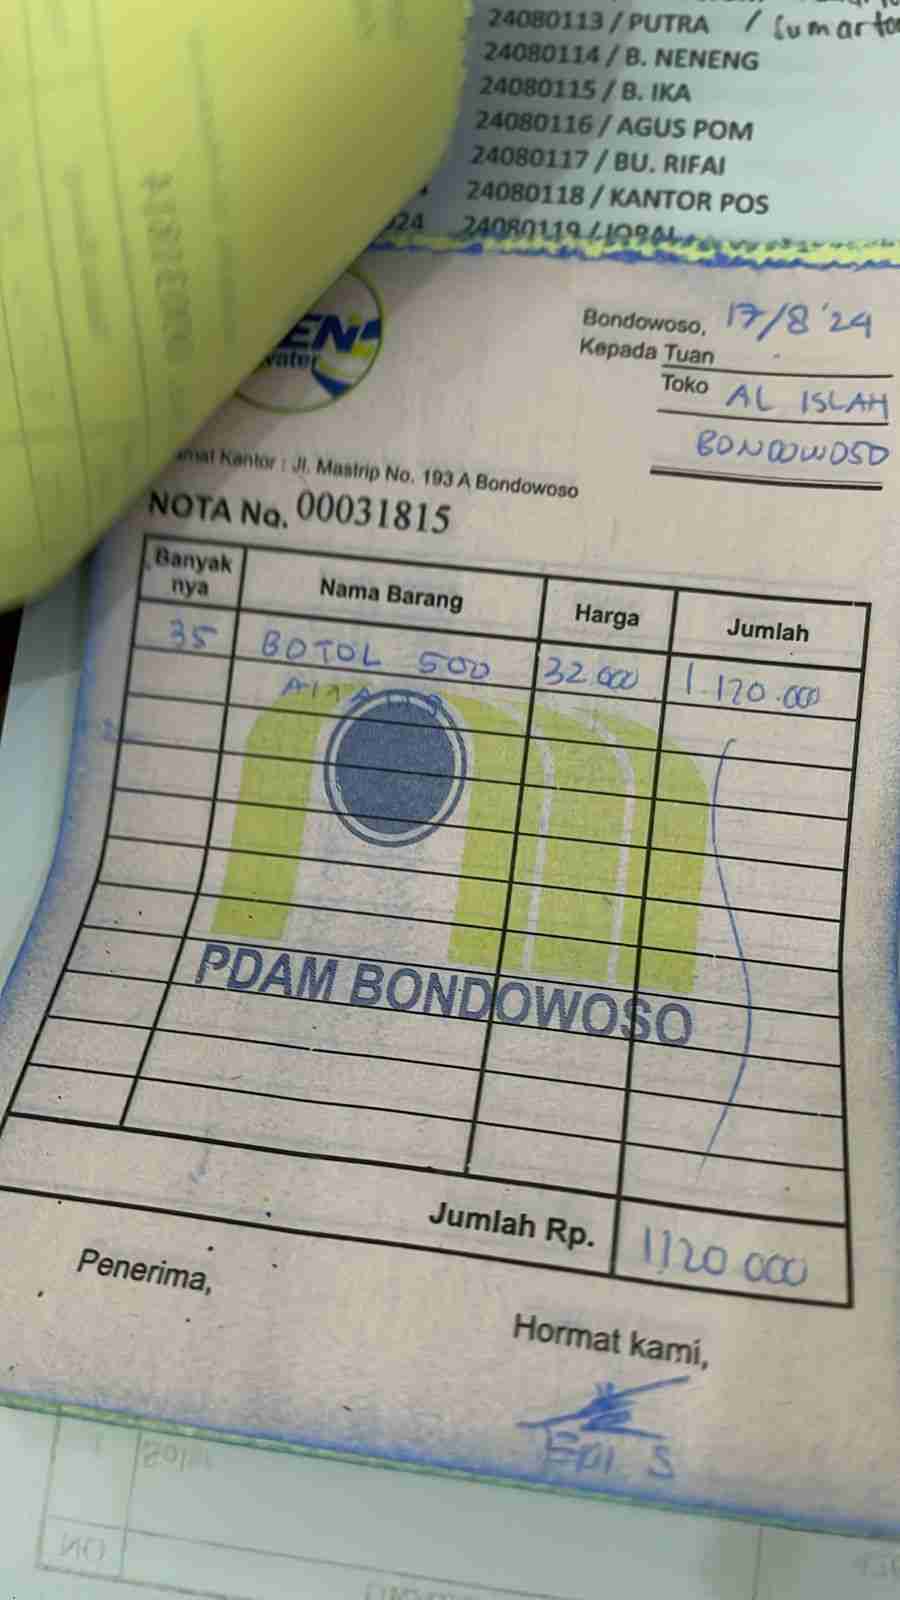 24080113 / PUTRA / Sumarto
24080114 / B. NENENG
24080115 / B. IKA
24080116 / AGUS POM
24080117 / BU. RIFAI
24080118 / KANTOR POS
24080119 /
Bondowoso, 17/8 '24
Kepada Tuan
Toko AL ISLAH
BONDOWOSO
Kantor : Jl. Mastrip No. 193 A Bondowoso
NOTA No. 00031815
Banyak nya Nama Barang Harga Jumlah
35 BOTOL 500 32.000 1.120.000
PDAM BONDOWOSO
Jumlah Rp. 1,120 000
Penerima,
Hormat kami,